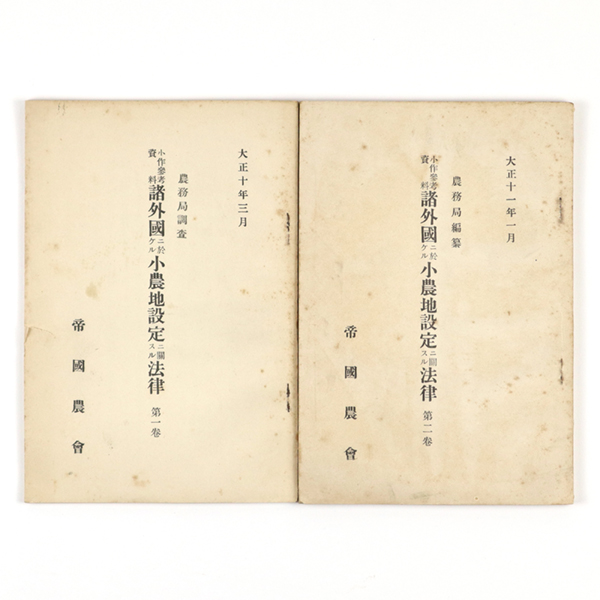 大正十年三月
農務局調査
小作參考資料諸外國ニ於ケル小農地設定ニ關スル法律 第一卷
帝國農會
大正十一年一月
農務局編纂
小作參考資料諸外國ニ於ケル小農地設定ニ關スル法律 第二卷
帝國農會